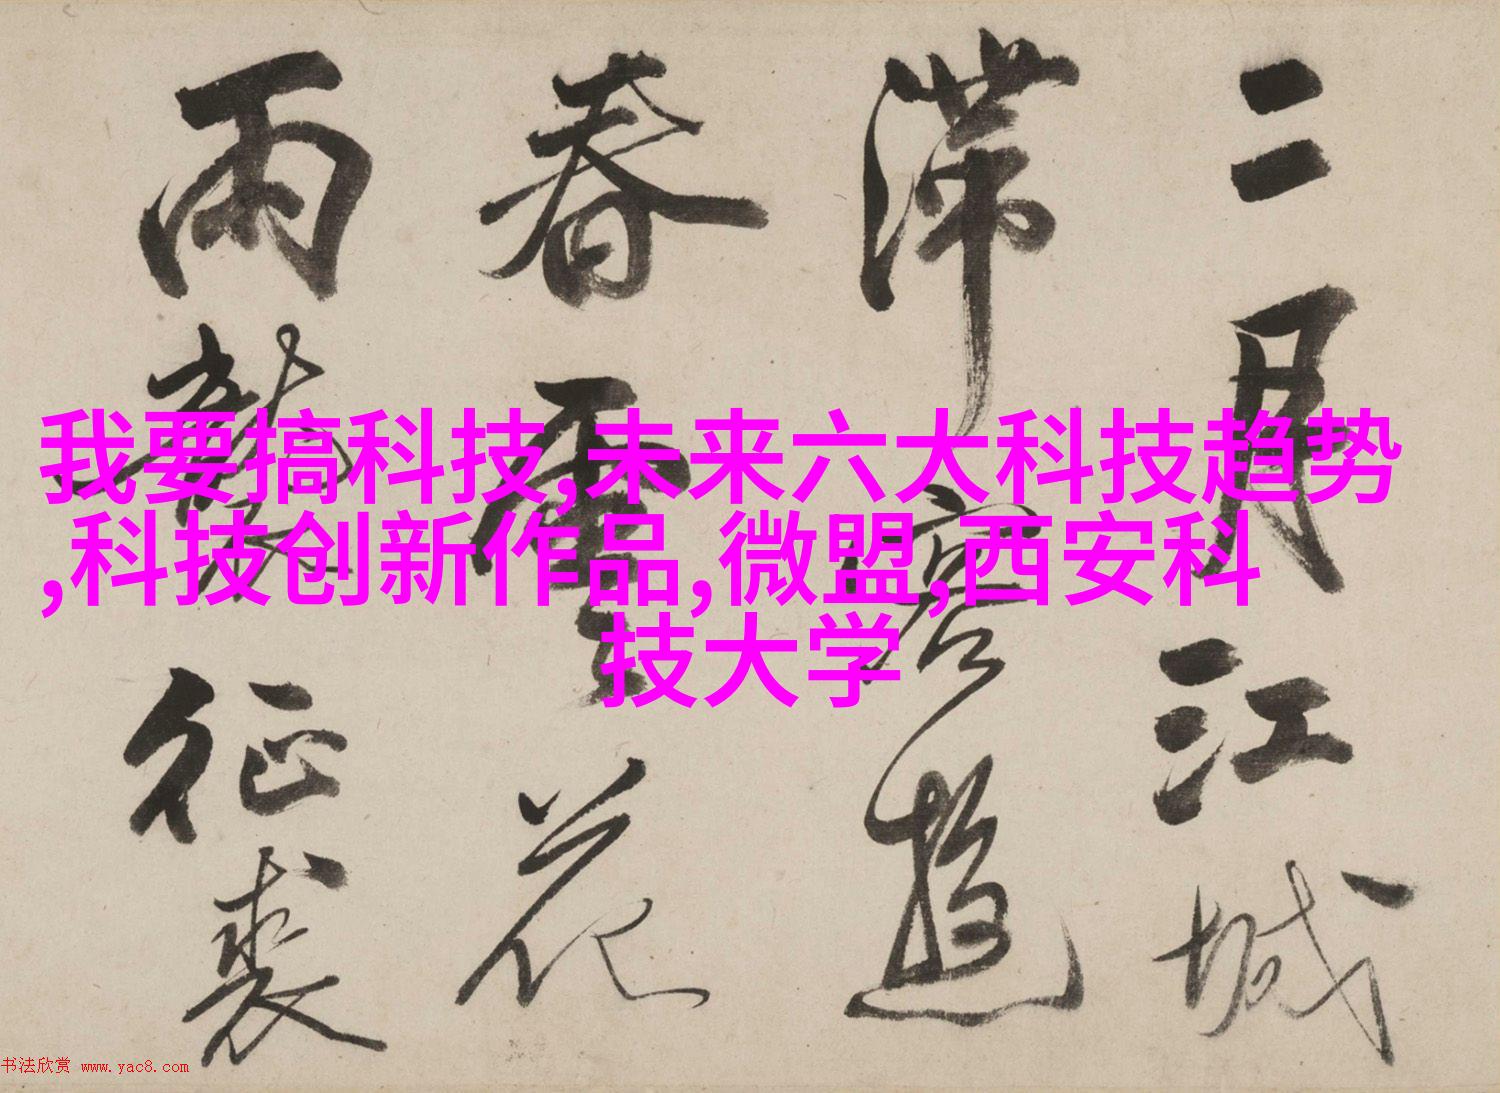 二月江城
滞客遊
春花
雨征裘
我要搞科技,未来六大科技趋势
,科技创新作品,微盟,西安科
技大学
书法欣赏 www.yac8.com